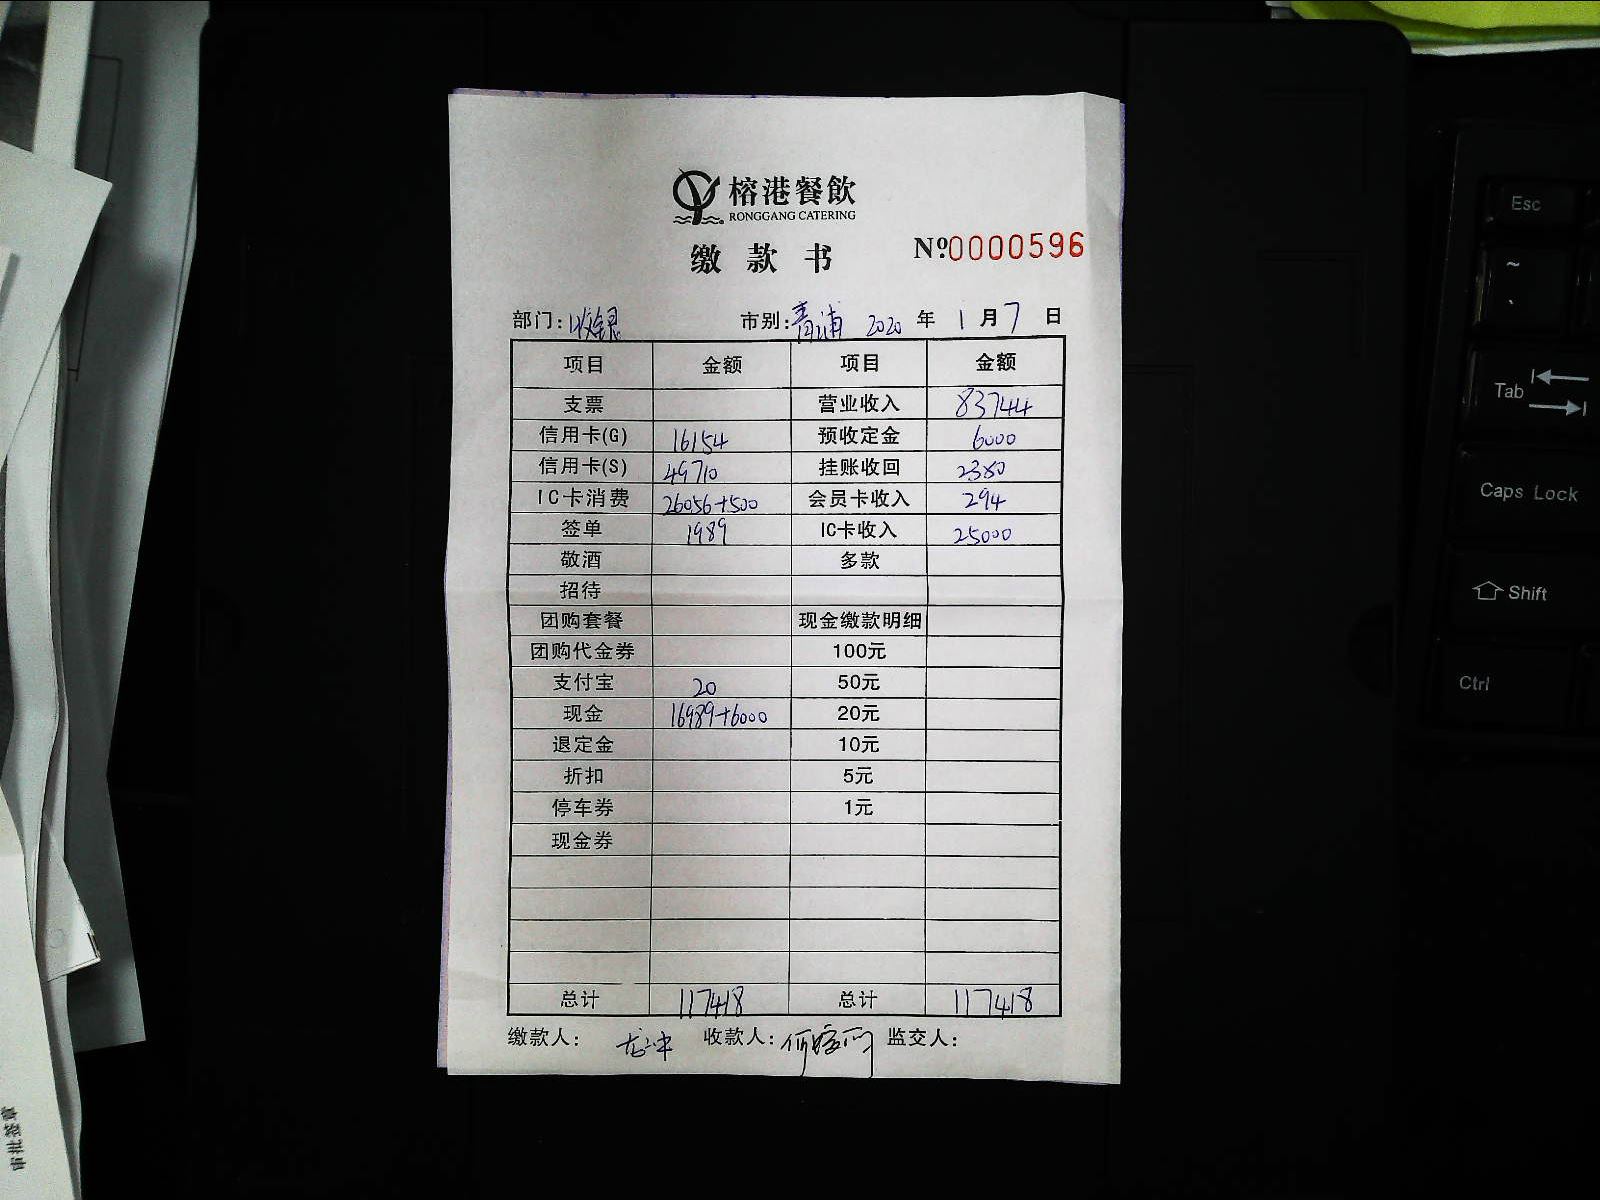 榕港餐飲
RONGGANG CATERING
缴款书 Nº.0000596
部门:收银 市别:青浦 2020 年 1 月 7 日
项目 金额 项目 金额
支票 营业收入 83744
信用卡(G) 16154 预收定金 6000
信用卡(S) 49710 挂账收回 2380
IC卡消费 26056+500 会员卡收入 294
签单 1989 IC卡收入 25000
敬酒 多款
招待
团购套餐 现金缴款明细
团购代金券 100元
支付宝 20 50元
现金 16989+6000 20元
退定金 10元
折扣 5元
停车券 1元
现金券
总计 117418 总计 117418
缴款人: 收款人: 监交人:
Esc
~
`
Tab
Caps Lock
Shift
Ctrl
审批签章